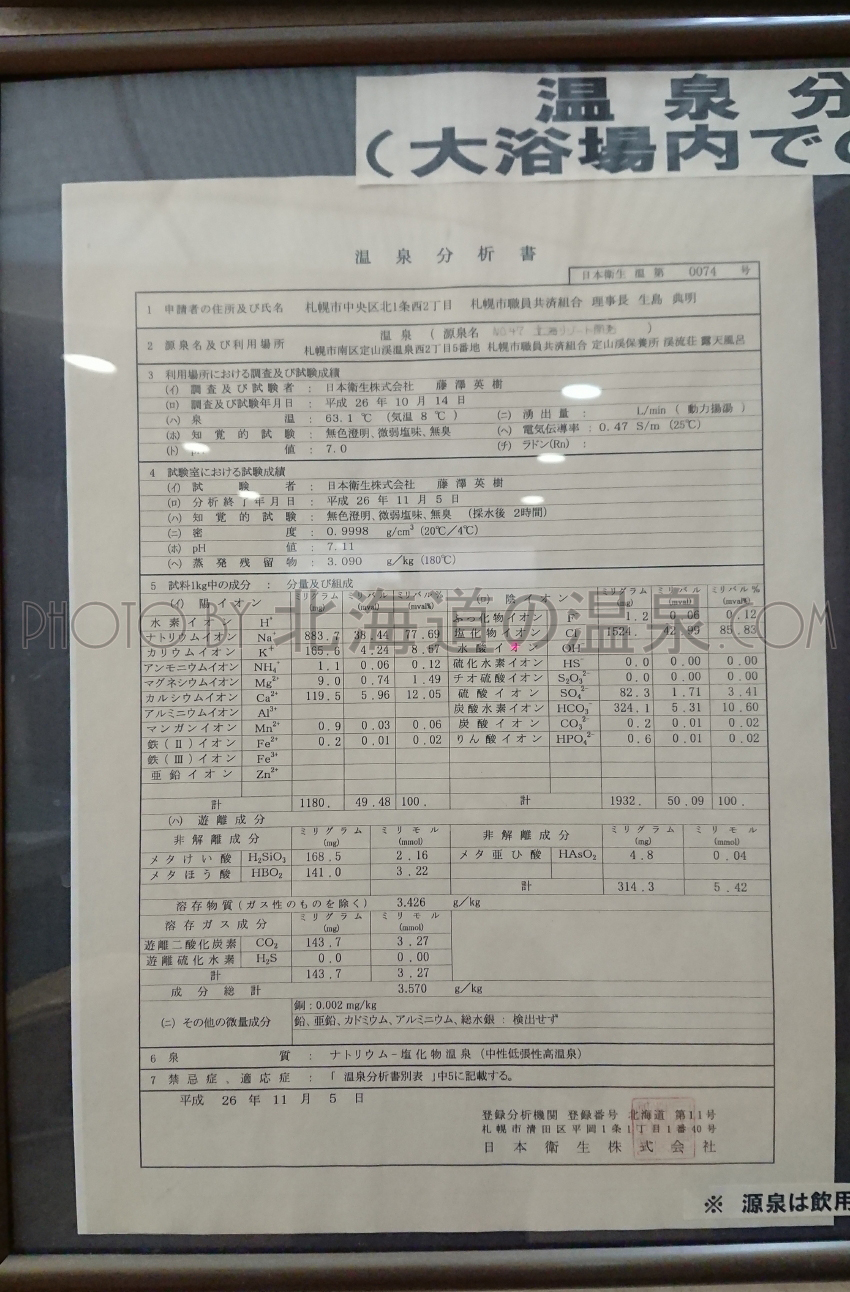 温泉分
(大浴場内で
温泉分析書
日本衛生 温 第 0074 号
1 申請者の住所及び氏名 札幌市中央区北1条西2丁目 札幌市職員共済組合 理事長 生島 典明
温泉 ( 源泉名 )
2 源泉名及び利用場所 札幌市南区定山渓温泉西2丁目5番地 札幌市職員共済組合 定山渓保養所 渓流荘 露天風呂
3 利用場所における調査及び試験成績
(イ) 調査及び試験者 : 日本衛生株式会社 藤澤英樹
(ロ) 調査及び試験年月日 : 平成 26 年 10 月 14 日
(ハ) 泉温 : 63.1 ℃ (気温 8 ℃ ) (ニ) 湧出量 : L/min ( 動力揚湯 )
(ホ) 知覚的試験 : 無色澄明、微弱塩味、無臭 (ヘ) 電気伝導率 : 0.47 S/m (25℃)
(ト) 値 : 7.0 (チ) ラドン(Rn) :
4 試験室における試験成績
(イ) 試験者 : 日本衛生株式会社 藤澤英樹
(ロ) 分析終了年月日 : 平成 26 年 11 月 5 日
(ハ) 知覚的試験 : 無色澄明、微弱塩味、無臭 (採水後 2時間)
(ニ) 密度 : 0.9998 g/cm³ (20℃/4℃)
(ホ) pH 値 : 7.11
(ヘ) 蒸発残留物 : 3.090 g/kg (180℃)
5 試料1kg中の成分 : 分量及び組成
(イ) 陽イオン ミリグラム (mg) ミリバル (mval) ミリバル% (mval%) (ロ) 陰イオン ミリグラム (mg) ミリバル (mval) ミリバル% (mval%)
水素イオン H⁺ ふっ化物イオン F⁻ 1.2 0.06 0.12
ナトリウムイオン Na⁺ 883.7 38.44 77.69 塩化物イオン Cl⁻ 1524. 42.95 85.83
カリウムイオン K⁺ 165.6 4.24 8.57 水酸イオン OH⁻
アンモニウムイオン NH₄⁺ 1.1 0.06 0.12 硫化水素イオン HS⁻ 0.0 0.00 0.00
マグネシウムイオン Mg²⁺ 9.0 0.74 1.49 チオ硫酸イオン S₂O₃²⁻ 0.0 0.00 0.00
カルシウムイオン Ca²⁺ 119.5 5.96 12.05 硫酸イオン SO₄²⁻ 82.3 1.71 3.41
アルミニウムイオン Al³⁺ 炭酸水素イオン HCO₃⁻ 324.1 5.31 10.60
マンガンイオン Mn²⁺ 0.9 0.03 0.06 炭酸イオン CO₃²⁻ 0.2 0.01 0.02
鉄(Ⅱ)イオン Fe²⁺ 0.2 0.01 0.02 りん酸イオン HPO₄²⁻ 0.6 0.01 0.02
鉄(Ⅲ)イオン Fe³⁺
亜鉛イオン Zn²⁺
計 1180. 49.48 100. 計 1932. 50.09 100.
(ハ) 遊離成分
非解離成分 ミリグラム (mg) ミリモル (mmol) 非解離成分 ミリグラム (mg) ミリモル (mmol)
メタけい酸 H₂SiO₃ 168.5 2.16 メタ亜ひ酸 HAsO₂ 4.8 0.04
メタほう酸 HBO₂ 141.0 3.22
計 314.3 5.42
溶存物質(ガス性のものを除く) 3.426 g/kg
溶存ガス成分 ミリグラム (mg) ミリモル (mmol)
遊離二酸化炭素 CO₂ 143.7 3.27
遊離硫化水素 H₂S 0.0 0.00
計 143.7 3.27
成分総計 3.570 g/kg
銅 : 0.002 mg/kg
(ニ) その他の微量成分 鉛、亜鉛、カドミウム、アルミニウム、総水銀 : 検出せず
6 泉質 : ナトリウム-塩化物温泉 (中性低張性高温泉)
7 禁忌症、適応症 : 「 温泉分析書別表 」中5に記載する。
平成 26 年 11 月 5 日
登録分析機関 登録番号 北海道 第11号
札幌市清田区平岡1条1丁目1番40号
日本衛生株式会社
※ 源泉は飲用
PHOTO BY 北海道の温泉.COM